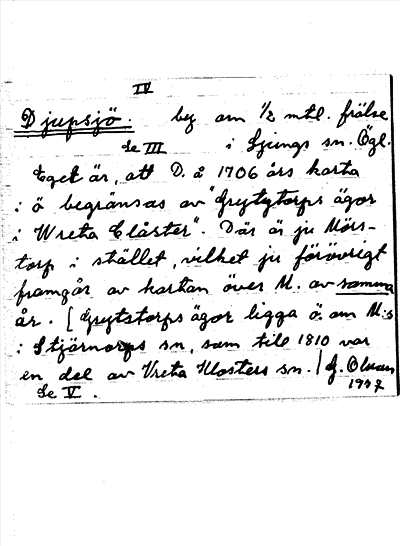 IV
Djupsjö. by om 1/2 mtl. frälse
Se III i Ljungs sn. Ögl.
Eget är, att D. å 1706 års karta
i ö begränsas av "Grytgtorps ägor
i Wreta Clåster". Där är ju Mörs-
torp i stället, vilket ju förövrigt
framgår av kartan över M. av samma
år. [Grytstorps ägor ligga ö. om M:s
i Stjärnorps sn, som till 1810 var
en del av Vreta Klosters sn.] G. Olsson
Se V. 1947